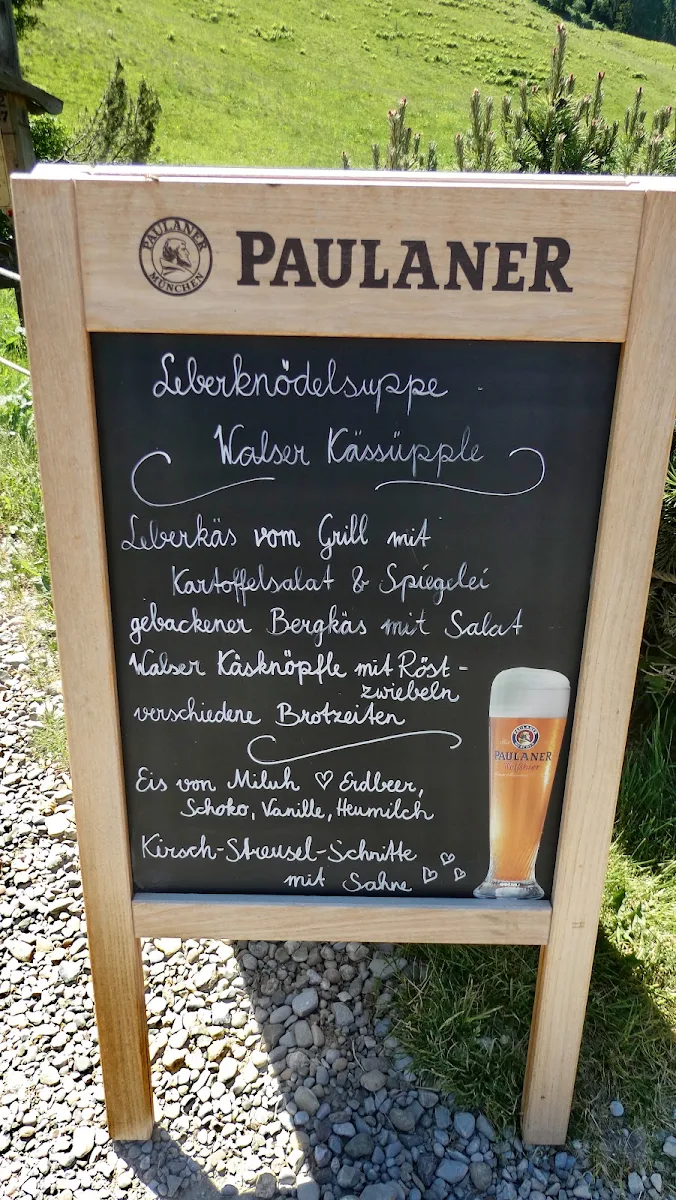 PAULANER
MÜNCHEN
PAULANER
Leberknödelsuppe
Walser Kässüpple
Leberkäs vom Grill mit
Kartoffelsalat & Spiegelei
gebackener Bergkäs mit Salat
Walser Käsknöpfle mit Röst-
zwiebeln
verschiedene Brotzeiten
Eis von Miluh ♡ Erdbeer,
Schoko, Vanille, Heumilch
Kirsch-Streusel-Schnitte
mit Sahne ♡♡♡
PAULANER
Weißbier